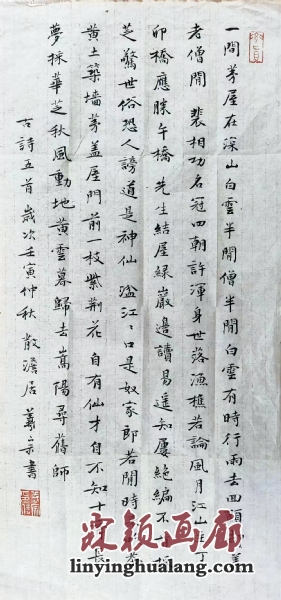 一間茅屋在深山白雲半間僧半間白雲有時行雨去回頭
老僧閒 裴相功名冠四朝許渾身世落漁樵若論風月江山主丁
卯橋應勝午橋 先生結屋綠巖邊讀易遥知屢絕編不
芝驚世俗恐人謗道是神仙 湓江江口是奴家郎若閒時
黄土築墙茅盖屋門前一枝紫荆花 自有仙才自不知十長
夢採華芝秋風動地黄雲暮歸去嵩陽尋舊師
古詩五首 歲次壬寅仲秋 散澹居 書
霖颖画廊
linyinghualang.com